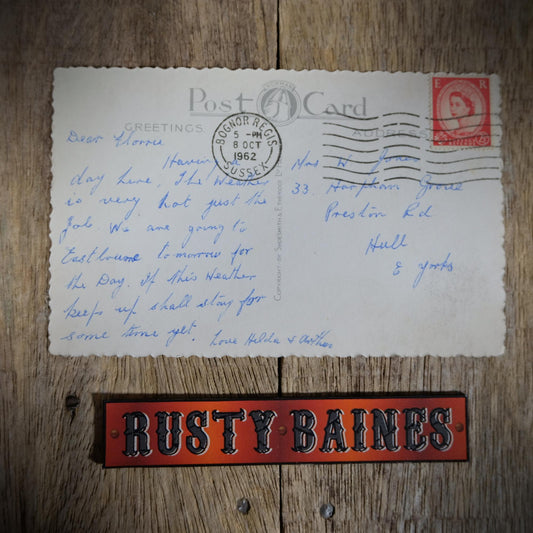 Post Card
GREETINGS.
ADDRESS
BOGNOR REGIS
5 - PM
8 OCT
1962
SUSSEX
E R
Dear Florrie
Having a
day here, The Weather
is very hot just the
Job. We are going to
Eastbourne tomorrow for
the Day. If this Weather
keeps up shall stay for
some time yet. Love Hilda & Arthur
COPYRIGHT OF SHOESMITH & ETHERIDGE LTD
Mrs W. Jones
33 Harpham Grove
Preston Rd
Hull
E Yorks
RUSTY BAINES